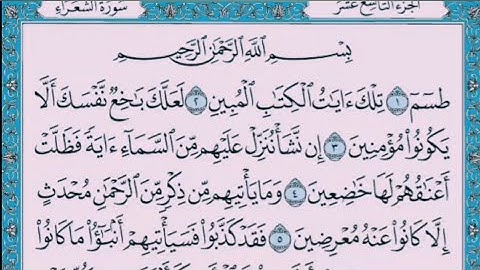 الجزء التاسع عشر سورة الشعراء
بِسْمِ ٱللَّهِ ٱلرَّحْمَٰنِ ٱلرَّحِيمِ
طسٓمٓ ١ تِلْكَ ءَايَٰتُ ٱلْكِتَٰبِ ٱلْمُبِينِ ٢ لَعَلَّكَ بَٰخِعٌ نَّفْسَكَ أَلَّا
يَكُونُوا۟ مُؤْمِنِينَ ٣ إِن نَّشَأْ نُنَزِّلْ عَلَيْهِم مِّنَ ٱلسَّمَآءِ ءَايَةً فَظَلَّتْ
أَعْنَٰقُهُمْ لَهَا خَٰضِعِينَ ٤ وَمَا يَأْتِيهِم مِّن ذِكْرٍ مِّنَ ٱلرَّحْمَٰنِ مُحْدَثٍ
إِلَّا كَانُوا۟ عَنْهُ مُعْرِضِينَ ٥ فَقَدْ كَذَّبُوا۟ فَسَيَأْتِيهِمْ أَنۢبَٰٓؤُا۟ مَا كَانُوا۟